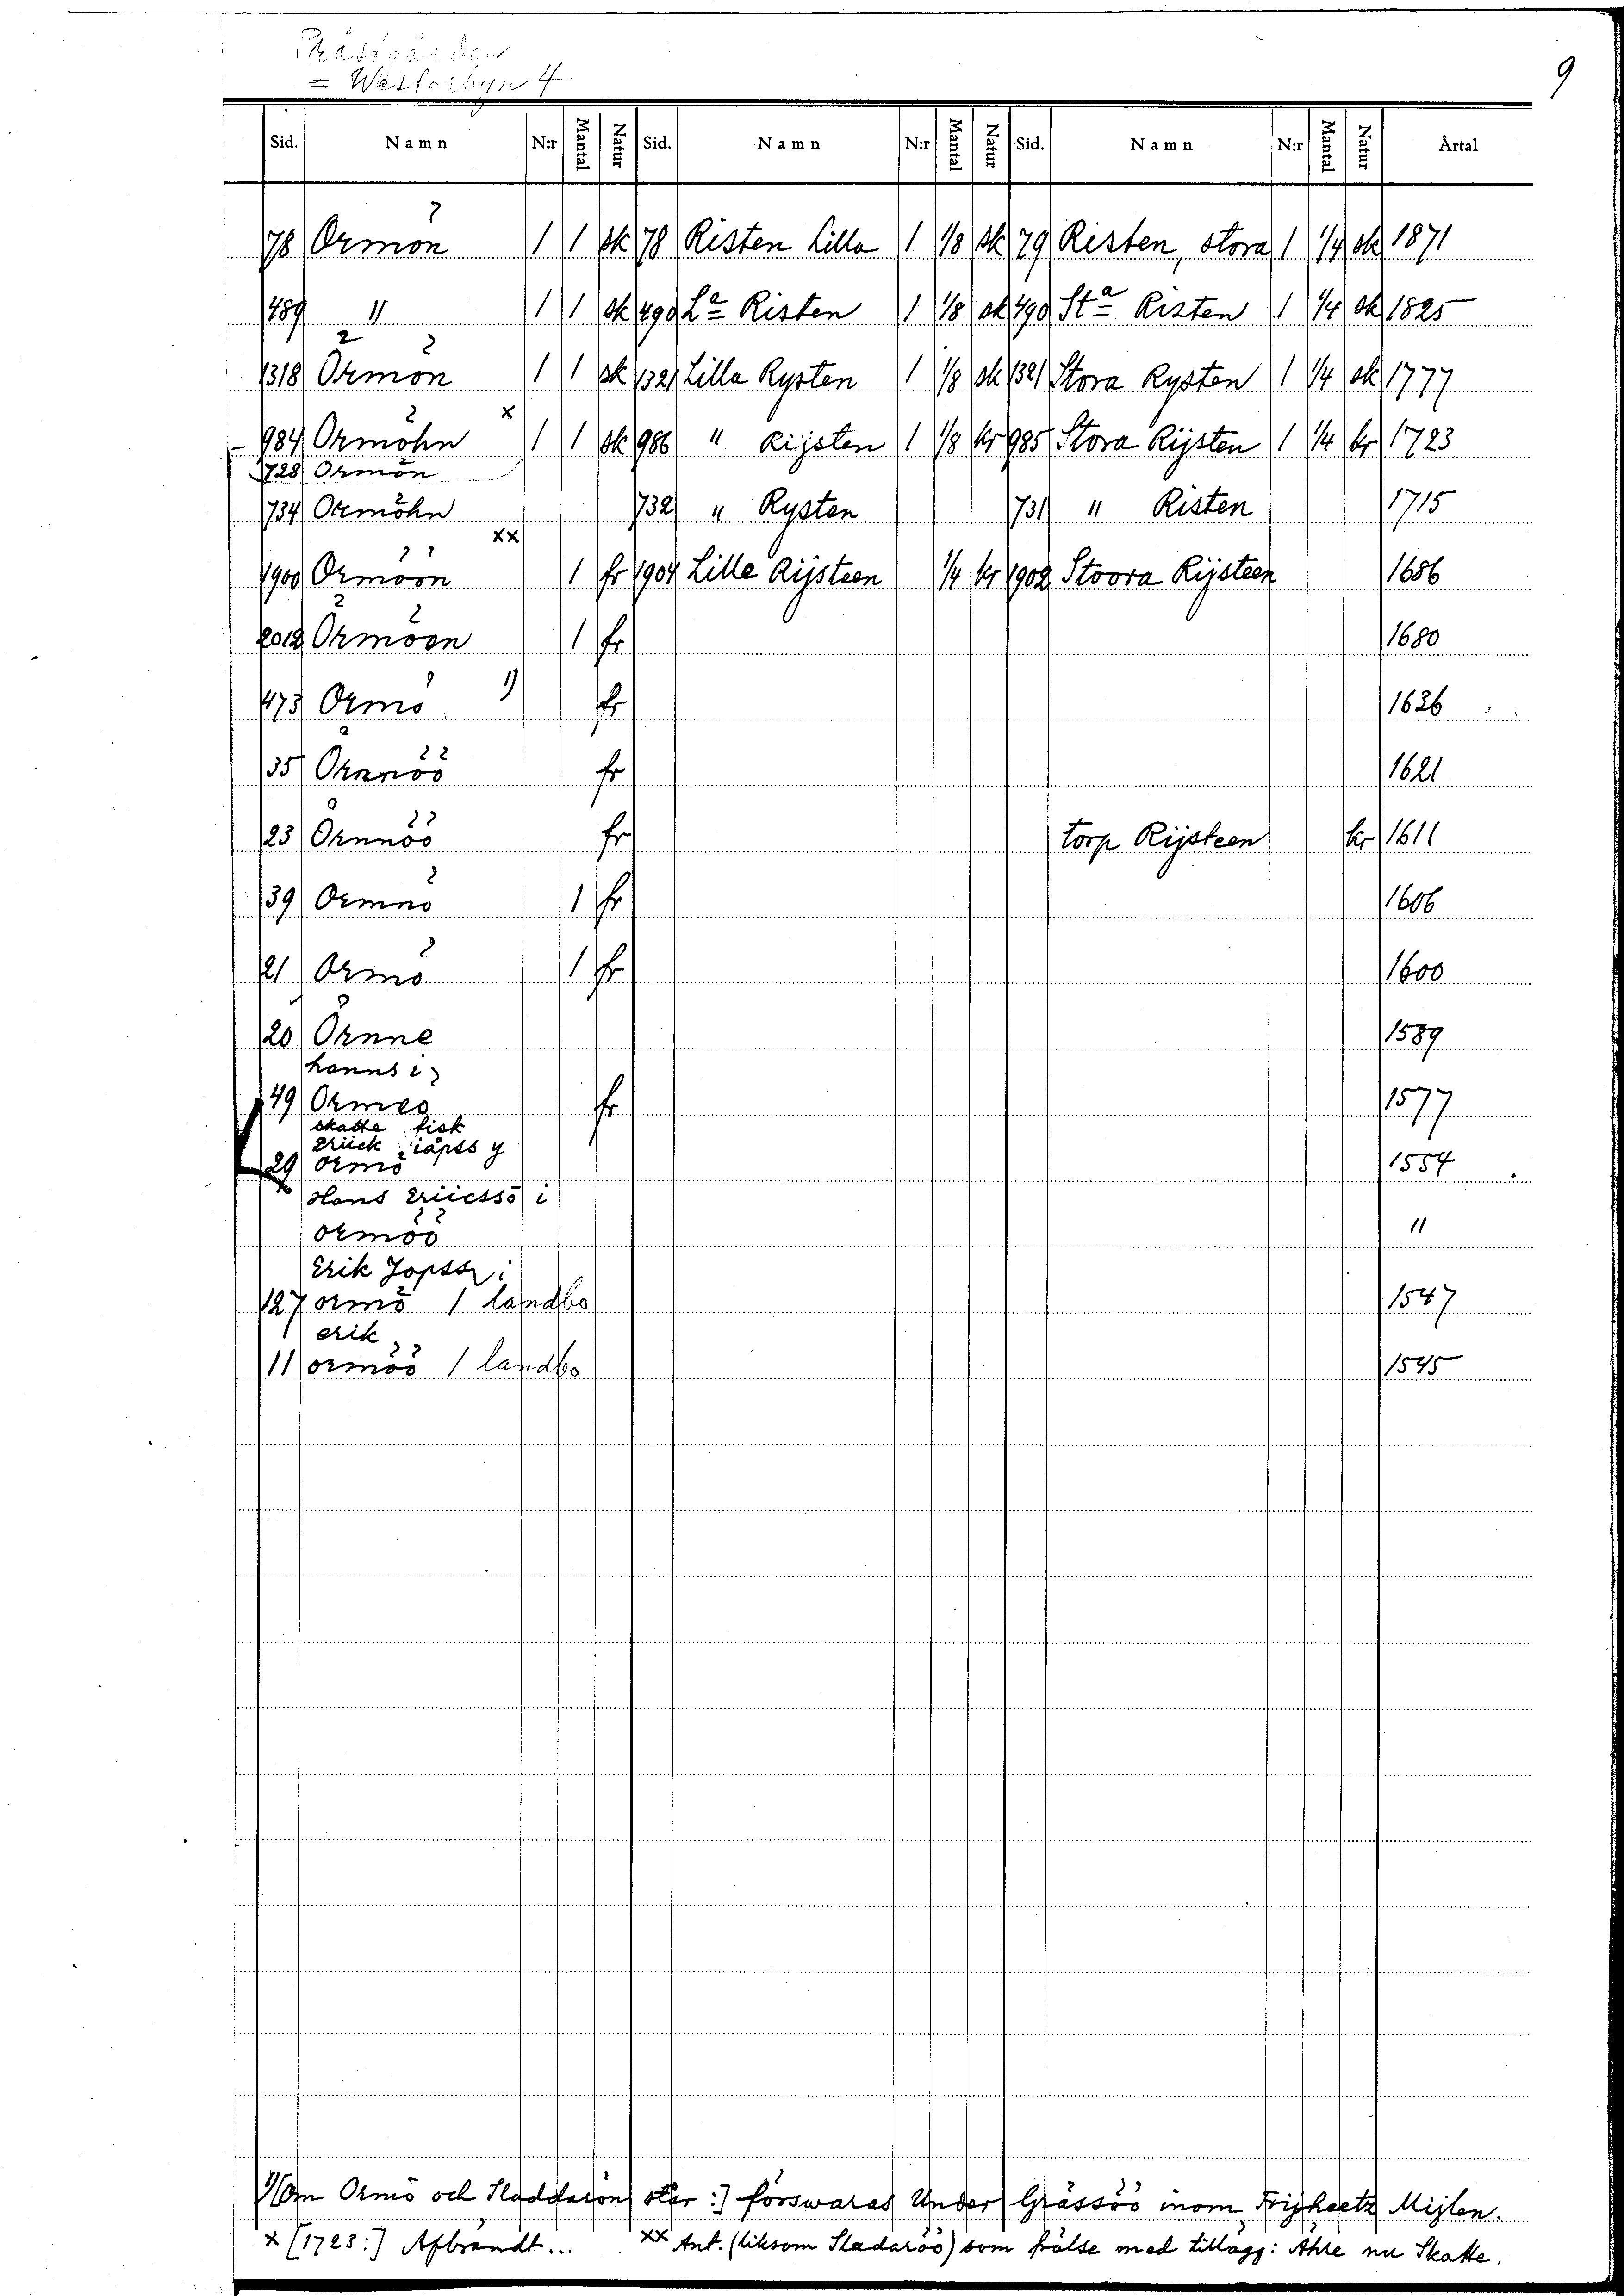 Prästgården
= Westerbyn 4
9
Sid. Namn N:r Mantal Natur Sid. Namn N:r Mantal Natur Sid. Namn N:r Mantal Natur Årtal
78 Ormön 1 1 sk 78 Risten Lilla 1 1/8 sk 79 Risten, stora 1 1/4 sk 1871
489 " 1 1 sk 490 La Risten 1 1/8 sk 490 Sta Risten 1 1/4 sk 1825
1318 Örmön 1 1 sk 1321 Lilla Rysten 1 1/8 sk 1321 Stora Rysten 1 1/4 sk 1777
984 Ormöhn x 1 1 sk 986 " Rijsten 1 1/8 kr 985 Stora Rijsten 1 1/4 kr 1723
728 Ormön
734 Ormöhn 732 " Rysten 731 " Risten 1715
1900 Ormöön xx 1 fr 1904 Lille Rijsteen 1/4 kr 1902 Stoora Rijsteen 1686
2012 Örmöen 1 fr 1680
473 Ormö 1) fr 1636
35 Örnnöö fr 1621
23 Örnnöö fr torp Rijsteen kr 1611
39 Ormnö 1 fr 1606
21 Ormö 1 fr 1600
20 Örnne 1589
hanns i
49 Ormeö fr 1577
skatte fisk
Eriick iåpss y
29 ormö 1554
Hans Eriicssö i
ormöö "
Erik Jopss i
127 ormö 1 landbo 1547
erik
11 ormöö 1 landbo 1545
1) [Om Ormö och Sladdarön står:] förswaras Under Grässöö inom Frijheetz Mijlen.
x [1723:] Afbrändt... xx Ant. (liksom Sladaröö) som frälse med tillägg: Ähre nu Skatte.